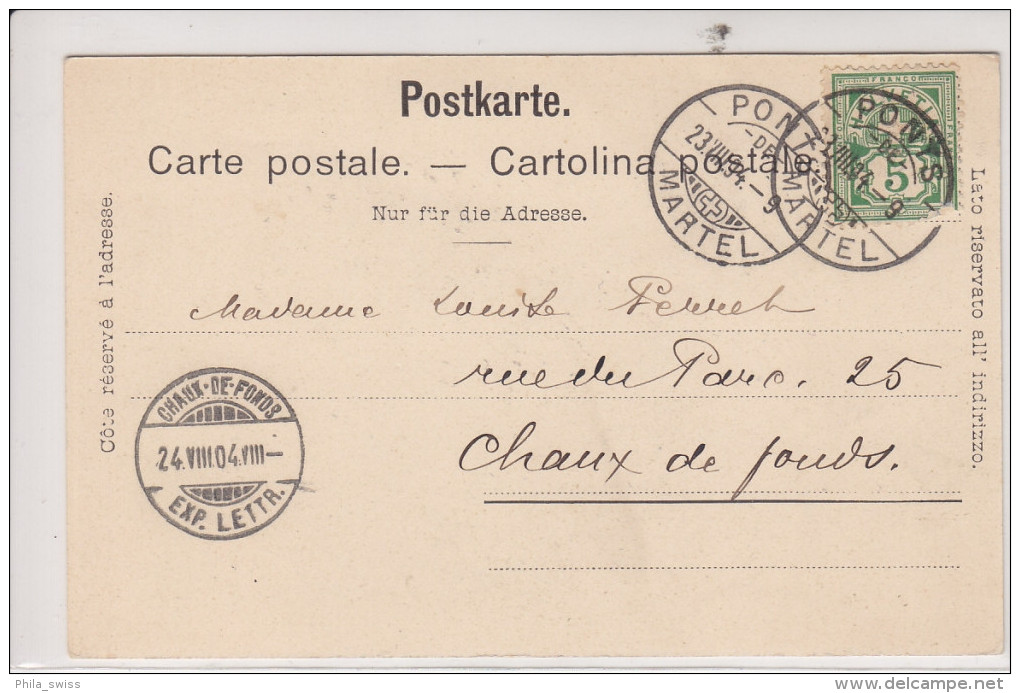 Postkarte.
Carte postale. — Cartolina postale.
Nur für die Adresse.
Côte réservé à l'adresse.
Lato riservato all' indirizzo.
PONTS
-DE-
23.VIII.04.-9
MARTEL
PONTS
-DE-
23.VIII.04.-9
MARTEL
FRANCO
5
Madame Louise Perret
rue du Parc. 25
Chaux de fonds.
CHAUX-DE-FONDS
24.VIII.04.VIII-
EXP. LETTR.
Phila_swiss